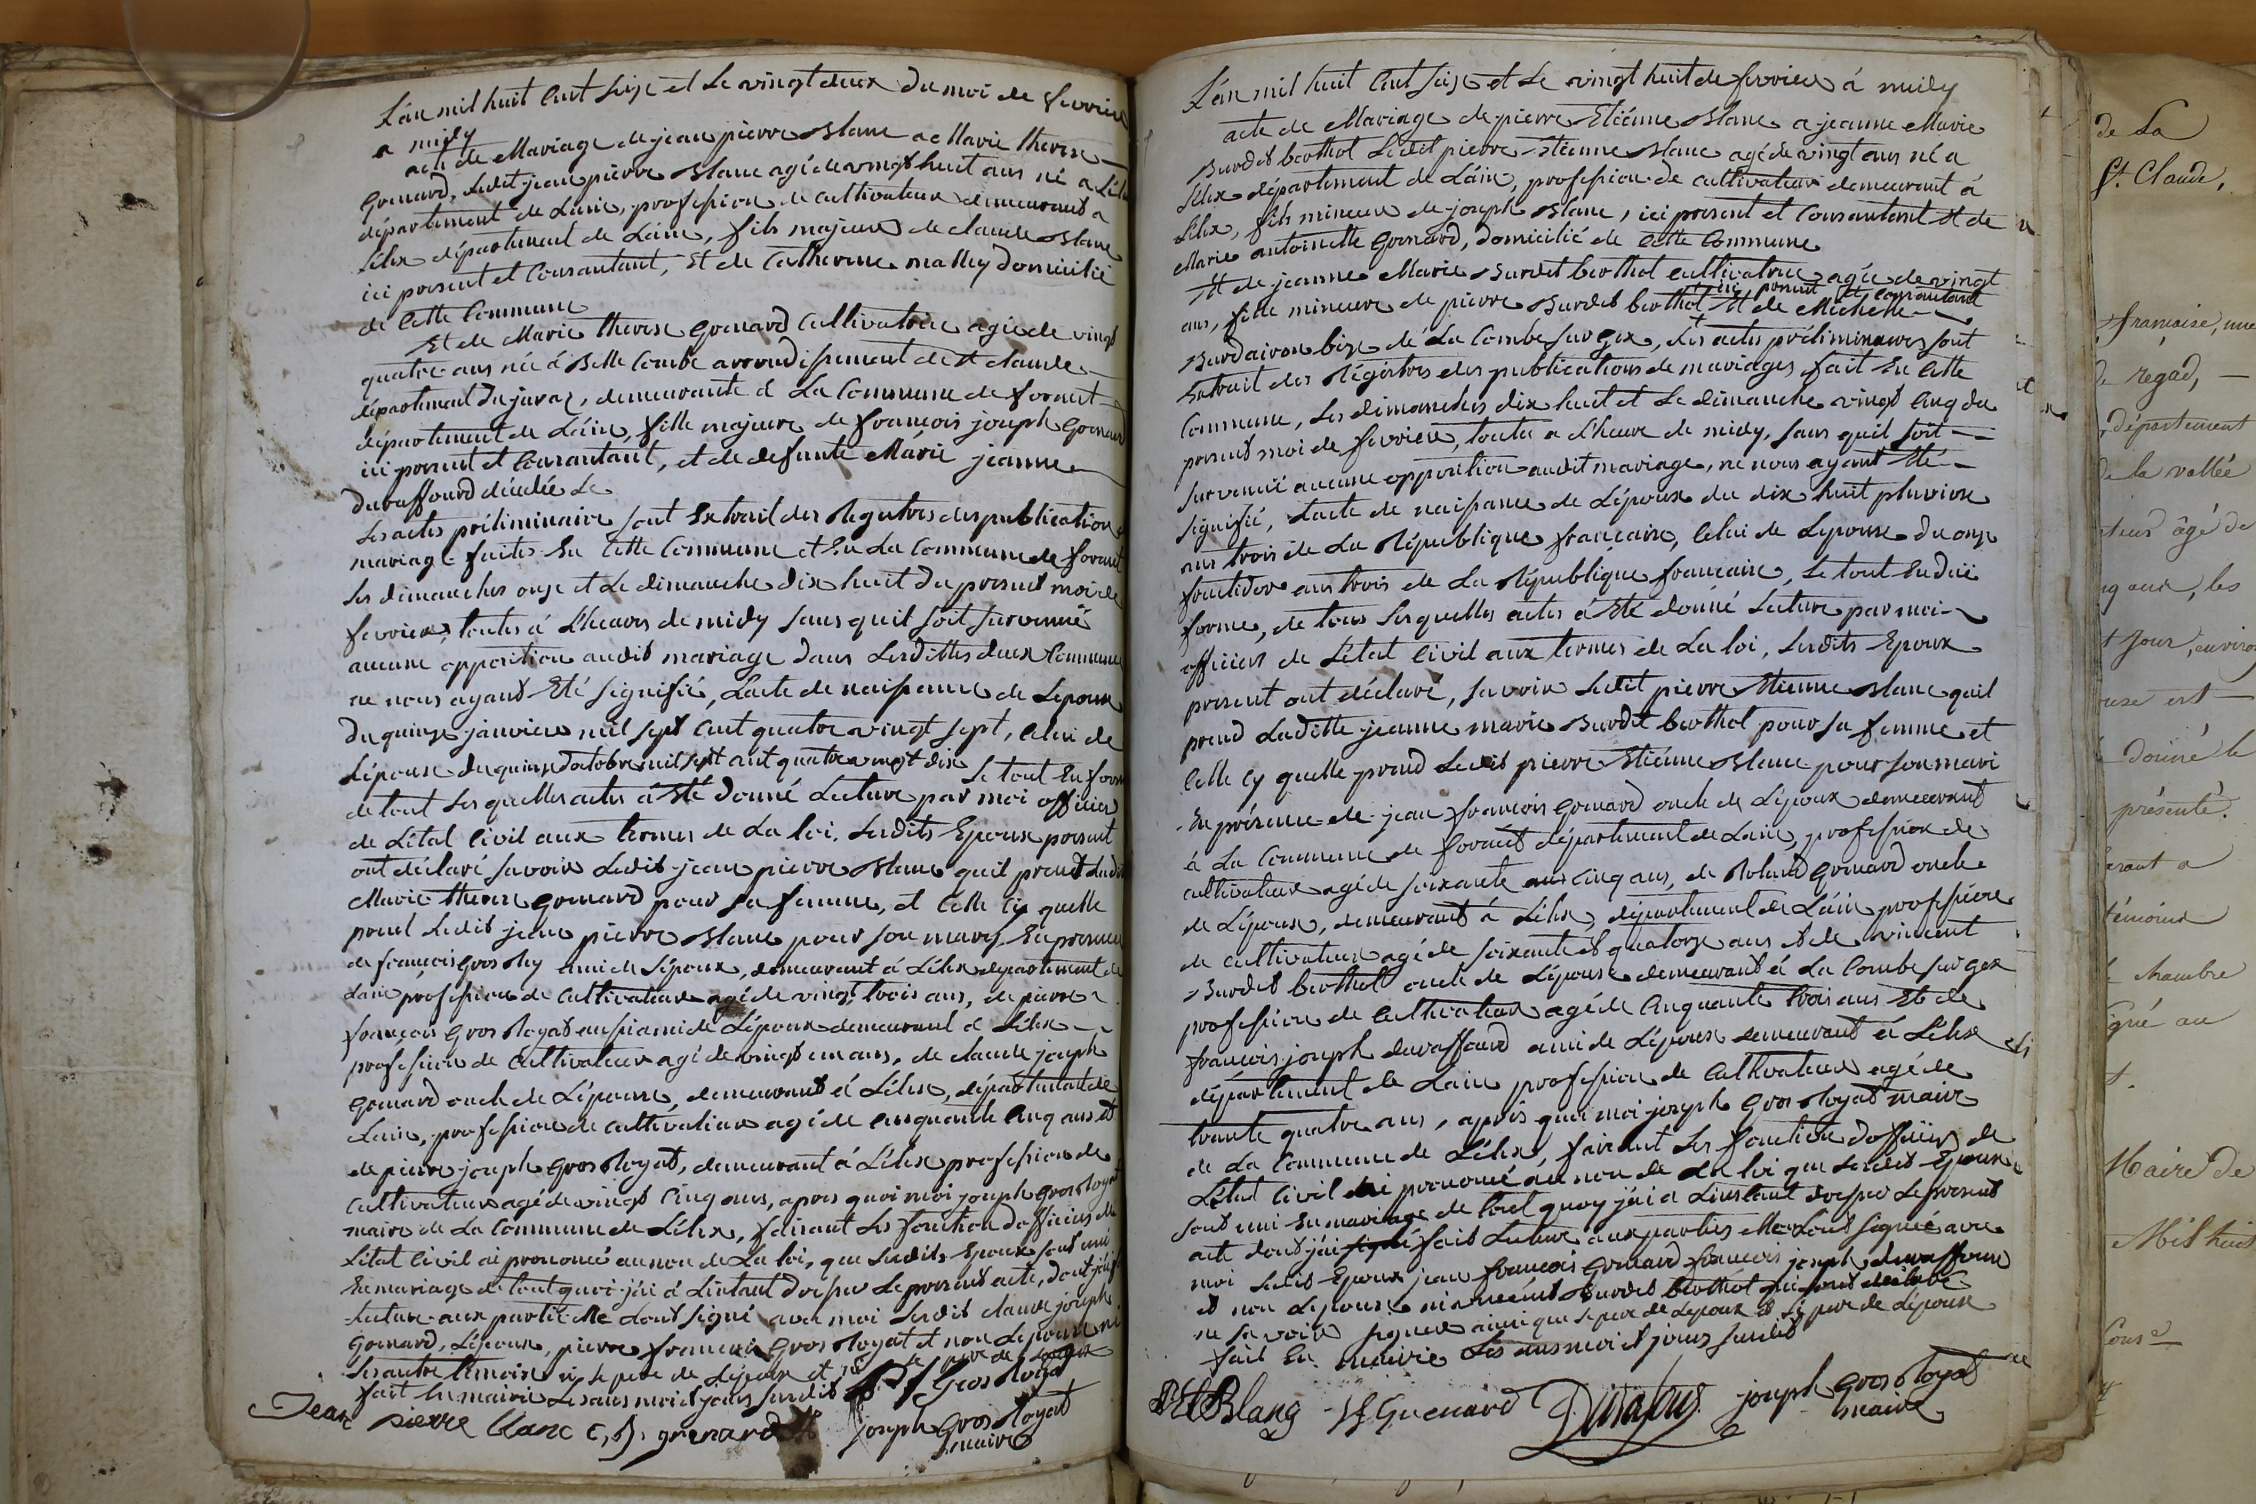 L'án mil huit Cent seize et Le vingt deux du moi de fevrier
a midy
acte de Mariage de jean pierre Blanc a Marie therese
Gonard, Ledit jean pierre Blanc agé de vingt huit ans né a Lélex
département de Lain, profession de cultivateur demeurant a
Lélex département de Lain, fils majeur de claude Blanc
ici present et Consantant, et de Catherine mathey domicilié
de Cette Commune
Et de Marie therese Gonard Cultivatrice agée de vingt
quatre ans née á Belle Combe arrondissement de st claude
département du jura, demeurante á La Commune de forent
département de Láin, fille majeure de françois joseph Gonard
ici present et Consantant, et de defunte Marie jeanne
Duraffourd décédée Le
Les actes préliminaire sont Extrait des Registres des publication de
mariage faites En Cette Commune et En La Commune de forent
Les dimanches onze et Le dimanche dix huit du present moi de
fevrier, toutes á L'heures de midy sans quil soit survenüe
aucune opposition audit mariage dans Lesdittes deux Commune
ne nous ayant Eté signifié, Lacte de naissance de Lepoux
du quinze janvier mil sept Cent quatre vingt sept, Celui de
Lépouse du quinze Doctobre mil sept cent quatre vingt dix Le tout En forme
de tout Lesquelles actes á Eté donné Lecture par moi officier
de L'état Civil aux termes de La loi. Lesdits Epoux present
ont déclaré savoir Ledit jean pierre Blanc quil prend Ladite
Marie therese Gonard pour sa femme, et Celle Cy quelle
prend Ledit jean pierre Blanc pour son mary. En presence
de françois Gros Rey ami de Lépoux, demeurant á Lélex département de
Lain profession de Cultivateur agé de vingt trois ans, de pierre
françois Gros Royat aussi ami de Lépoux demeurant á Lélex
profession de Cultivateur agé de vingt un ans, de claude joseph
Gonard oncle de Lépouse, demeurant á Lélex, département de
Lain, profession de Cultivateur agé de Cinquante Cinq ans et
de pierre joseph Gros Royat, demeurant á Lélex profession de
Cultivateur agé de vingt Cinq ans, apres quoi moi joseph Gros Royat
maire de La Commune de Lélex, faisant Les fonction dofficier de
L'état Civil ai prononcé au non de La loi, que Lesdits Epoux sont uni
En mariage de tout quoi jái á Linstant dresser Le present acte, dont jai fait
Lecture aux partie Me dont signé avec moi Ledit claude joseph
Gonard, Lépoux, pierre françois Gros Royat et non Lepouse ni
Les autre temoins ni Le pere de Lépoux et ni Le pere de Lépouse
fait En mairie Les ans moi et jours susdit
P f Gros Royat
Jean pierre blanc C, J, gonard
joseph Gros Royat
maire
L'án mil huit Cent seize et Le vingt huit de fevrier á midy
acte de Mariage de pierre Etiénne Blanc a jeanne Marie
Burdet berthot Ledit pierre Etienne Blanc agé de vingt ans né a
Lélex département de Láin, profession de cultivateur demeurant á
Lélex, fils mineur de joseph Blanc, ici present et Consantant et de
Marie antoinette Gonard, domicilié de Cette Commune
Et de jeanne Marie Burdet berthot cultivatrice agée de vingt
ans, fille mineure de pierre Burdet berthot ici present et consantant Et de Michelle
Burdairon bize de La Combe sur Gex, Les actes préliminaires sont
Extrait des Régistres des publications de mariages fait En Cette
Commune, Les dimanches dix huit et Le dimanche vingt Cinq du
present moi de fevrier, toutes a L'heure de midy, sans quil soit
survenüe aucune opposition audit mariage, ne nous ayant Eté
signifié, Lacte de naissance de Lépoux du dix huit pluviose
ans trois de La République française, Celui de Lepouse du onze
fructidor ans trois de La République française, Le tout En düe
forme, de tous Lesquelles actes á Eté donné Lecture par moi
officier de L'état Civil aux termes de La loi, Lesdits Epoux
present ont déclaré, savoir Ledit pierre Etienne Blanc quil
prend Laditte jeanne marie Burdet berthot pour sa femme et
Celle Cy quelle prend Ledit pierre Etiénne Blanc pour son mari
En présence de jean françois Gonard oncle de Lépoux demeurant
á La Commune de forent département de Lain, profession de
cultivateur agé de soixante Cinq ans, de Roland Gonard oncle
de Lépoux, demeurant á Lélex, département de Láin profession
de cultivateur agé de soixante et quatorze ans et de vincent
Burdet berthot oncle de Lépouse demeurant á La Combe sur Gex
profession de Cultivateur agé de Cinquante trois ans Et de
françois joseph duraffourd ami de Lépoux demeurant á Lélex
département de Lain profession de Cultivateur agé de
trante quatre ans, aprés quoi moi joseph Gros Royat maire
de La Commune de Lélex, faisant Les fonction dofficier de
L'état Civil ai prononcé au non de La loi que Lesdits Epoux
sont uni En mariage de tout quoy jái a Linstant dresser Le present
acte dont jái fait Lecture aux parties Me dont signée avec
moi Ledit Epoux jean françois Gonard françois joseph duraffourd
et non Lepouse ni vincent Burdet berthot qui ont déclaré
ne savoir signer ainsi que le pere de Lepoux et Le pere de Lépouse
fait En mairie Les ans moi et jours susdit
P E Blanc J f Guenard Durafour joseph Gros Royat
maire
de La
St. Claude,
française, une
de regad,
département
de la vallée
âgé de
les
jour, environ
est
donné le
présenté.
témoins
Chambre
signé au
Maire de
Mil huit